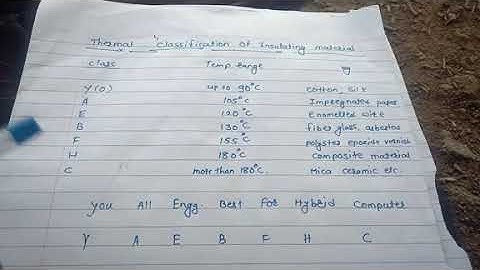 Thermal classification of Insulating material
class Temp. Range eg
Y(O) up to 90°C cotton, silk
A 105°C Impregnated paper
E 120°C Enamelled wire
B 130°C fiber glass, asbestos
F 155°C polyster epoxide varnish
H 180°C Composite material
C more than 180°C. Mica ceramic etc.
You All Engg. Best For Hybrid Computer
Y A E B F H C